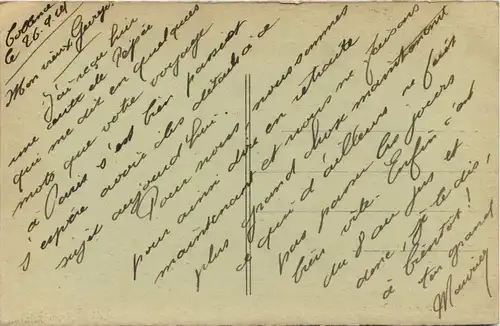 le 26.9.24
Mon vieux George,
J'ai reçu hier
une carte de Pépée
qui me dit en quelques
mots que votre voyage
à Paris s'est bien passé et
j'espère avoir des détails à ce
sujet aujourd'hui.
Pour nous, nous sommes
pour ainsi dire en retraite
maintenant et nous ne faisons
plus grand chose maintenant
ce qui d'ailleurs ne fait
pas passer les jours
bien vite. Enfin c'est
du 8 au jus et
donc, je te le dis,
à bientôt !
ton grand
Maurice